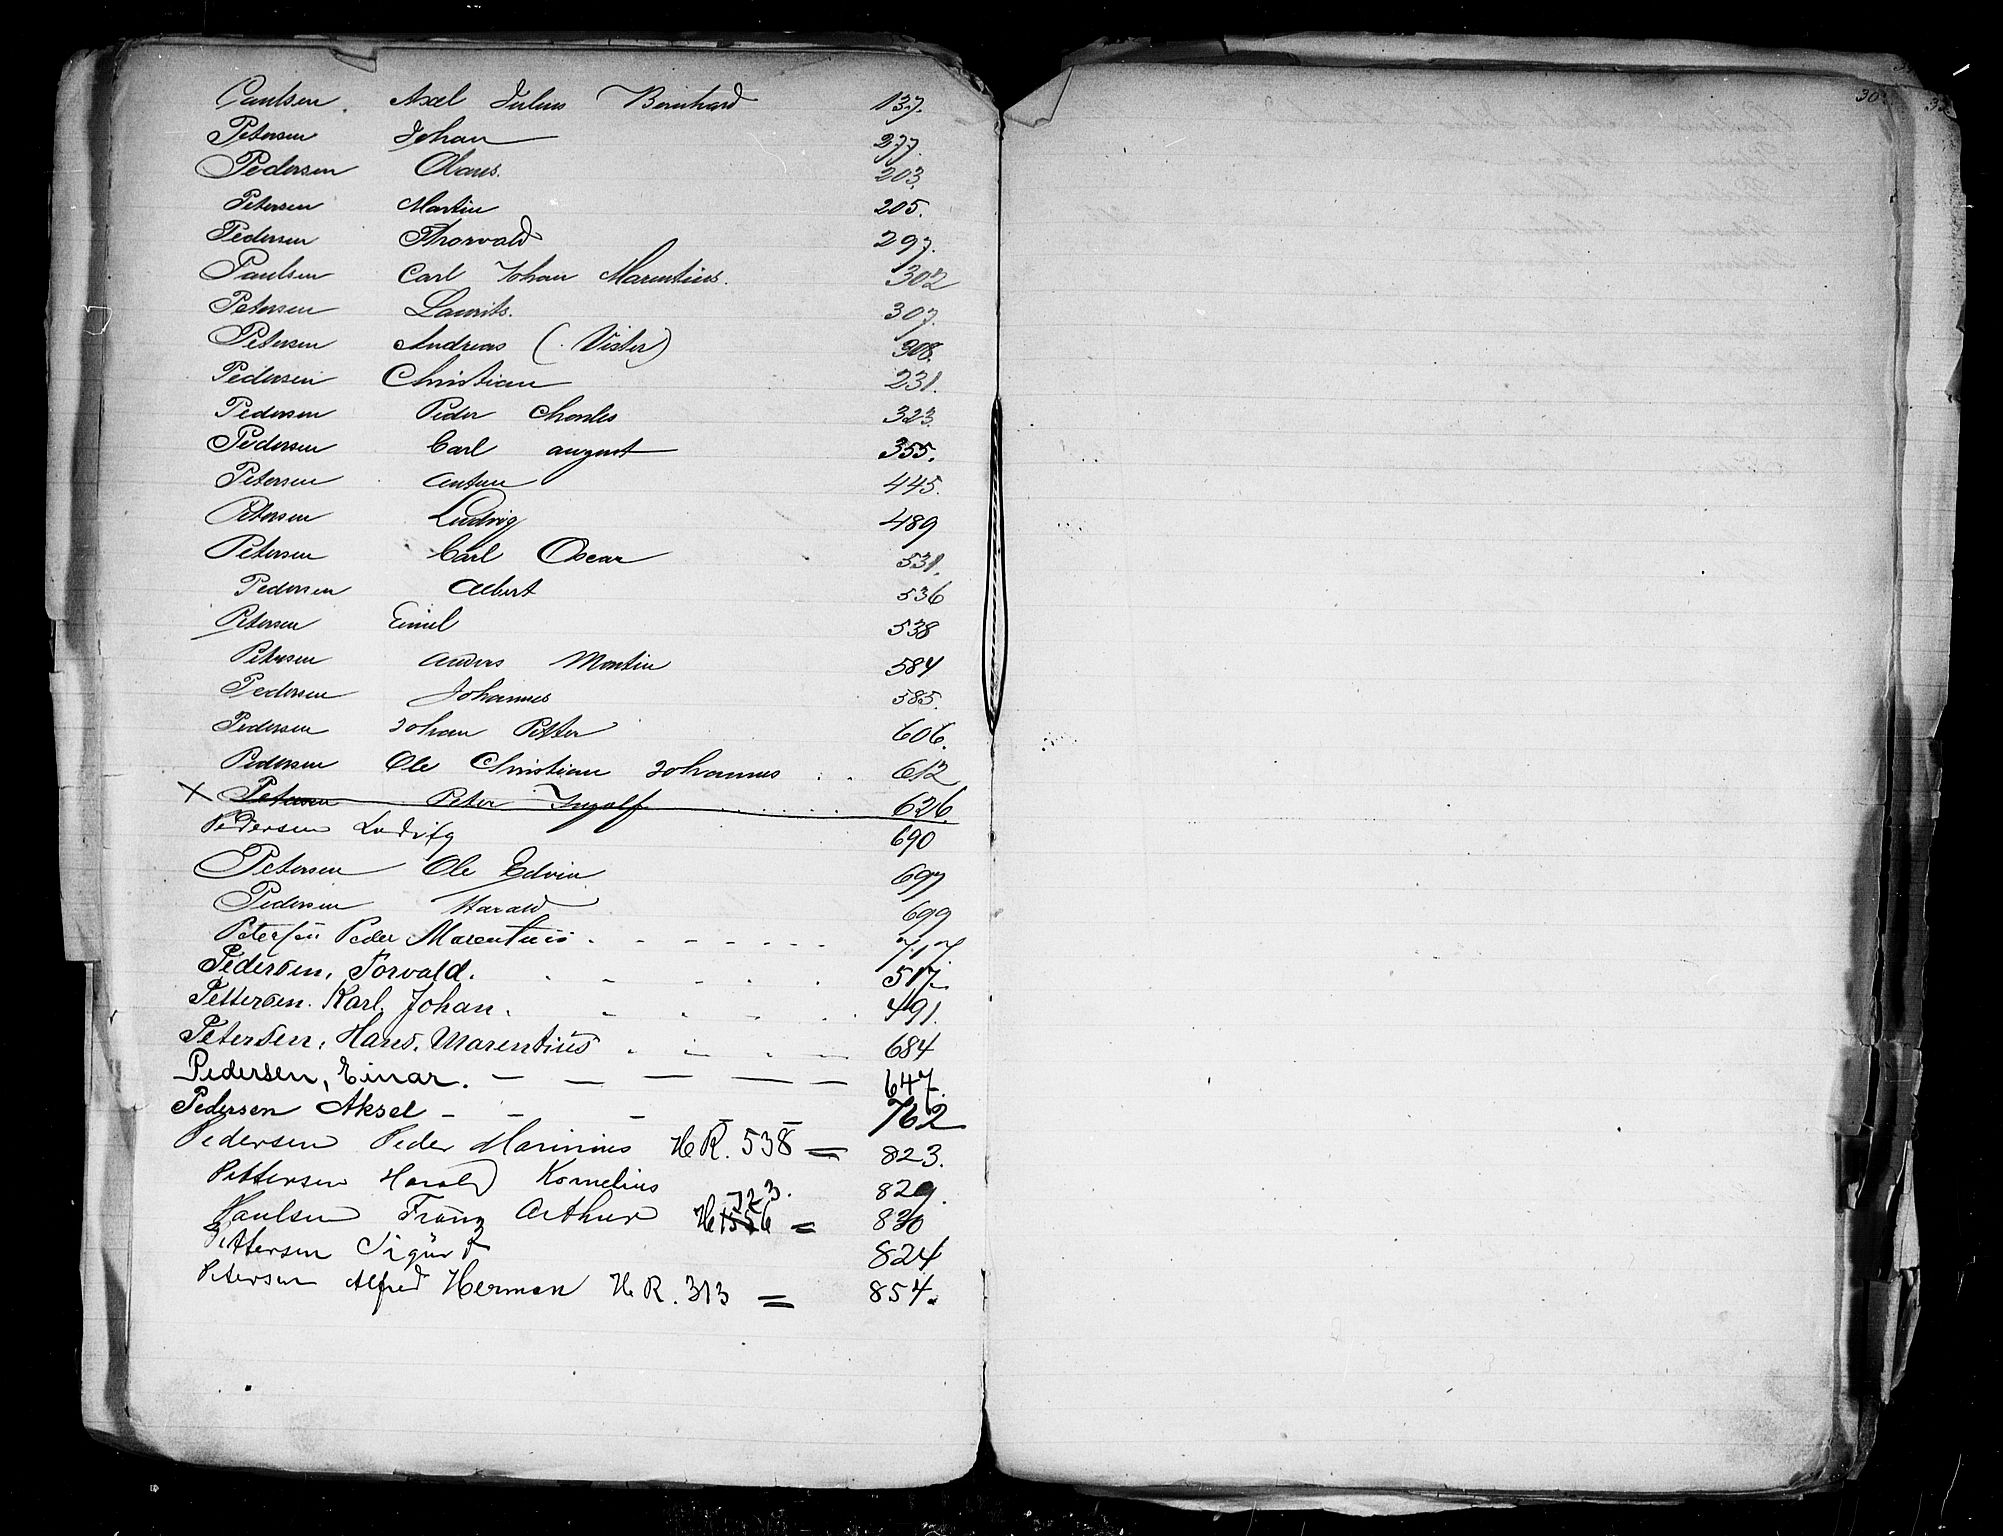 Paulsen. Axel Julius Bernhard 137.
Petersen Johan 277.
Pedersen Olaus. 203.
Petersen Martin 205.
Pedersen Thorvald 297.
Paulsen Carl Johan Marentius. 302
Petersen Laurits. 307.
Petersen Andreas (Vister) 308.
Pedersen Christian 231.
Pedersen Peder Charles 323.
Pedersen Carl august 355.
Petersen Anton 445.
Petersen Ludvig 489
Petersen Carl Oscar 531.
Pedersen Albert 536
Petersen Emil 538
Petersen Anders Martin 584
Pedersen Johannes 585.
Pedersen Johan Petter 606.
Pedersen Ole Christian Johannes . . . 612
X Petersen Peter Ingolf . . . . . 626.
Pedersen Ludvig 690
Petersen Ole Edvin 697
Pedersen Harald 699
Petersen Peder Marentius . - - - - . . . 717
Pedersen, Torvald. . - . - . . 517.
Pettersen. Karl. Johan. - . - . . 491.
Petersen, Hans, Marentius . - . - 684
Pedersen, Einar. - - - - - 647.
Pedersen Aksel - - - - - 762
Pedersen Peder Marinius HR. 538 = 823.
Pettersen Harald Kornelius 829.
723.
Paulsen Franz Arthur H 1556 = 830
Pettersen Sigurd 824
Petersen Alfred Herman HR. 313 = 854.
30.